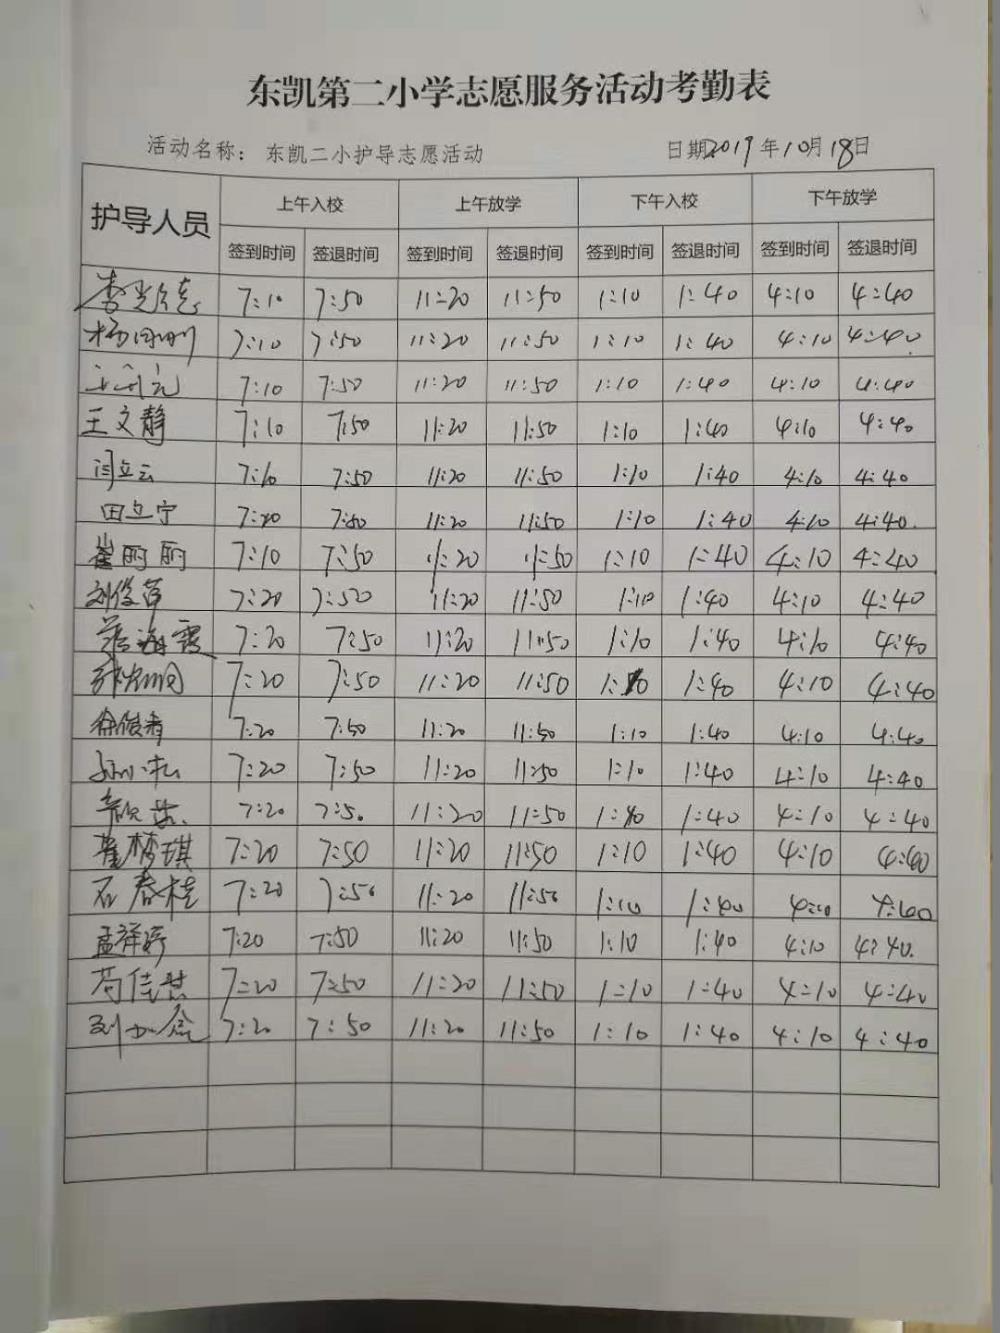 东凯第二小学志愿服务活动考勤表
活动名称：东凯二小护导志愿活动 日期2019年10月18日
护导人员 上午入校 上午放学 下午入校 下午放学
签到时间 签退时间 签到时间 签退时间 签到时间 签退时间 签到时间 签退时间
7:10 7:50 11:20 11:50 1:10 1:40 4:10 4:40
7:10 7:50 11:20 11:50 1:10 1:40 4:10 4:40
7:10 7:50 11:20 11:50 1:10 1:40 4:10 4:40
王文静 7:10 7:50 11:20 11:50 1:10 1:40 4:10 4:40
闫立云 7:10 7:50 11:20 11:50 1:10 1:40 4:10 4:40
田立宁 7:20 7:50 11:20 11:50 1:10 1:40 4:10 4:40.
崔丽丽 7:10 7:50 11:20 11:50 1:10 1:40 4:10 4:40
刘俊萍 7:20 7:50 11:20 11:50 1:10 1:40 4:10 4:40
蒋海霞 7:20 7:50 11:20 11:50 1:10 1:40 4:10 4:40
7:20 7:50 11:20 11:50 1:10 1:40 4:10 4:40
徐俊青 7:20 7:50 11:20 11:50 1:10 1:40 4:10 4:40
孙小松 7:20 7:50 11:20 11:50 1:10 1:40 4:10 4:40
7:20 7:50 11:20 11:50 1:10 1:40 4:10 4:40
崔梦琪 7:20 7:50 11:20 11:50 1:10 1:40 4:10 4:40
石春桂 7:20 7:50 11:20 11:50 1:10 1:40 4:10 4:40
孟祥婷 7:20 7:50 11:20 11:50 1:10 1:40 4:10 4:40.
苟佳慧 7:20 7:50 11:20 11:50 1:10 1:40 4:10 4:40
7:20 7:50 11:20 11:50 1:10 1:40 4:10 4:40